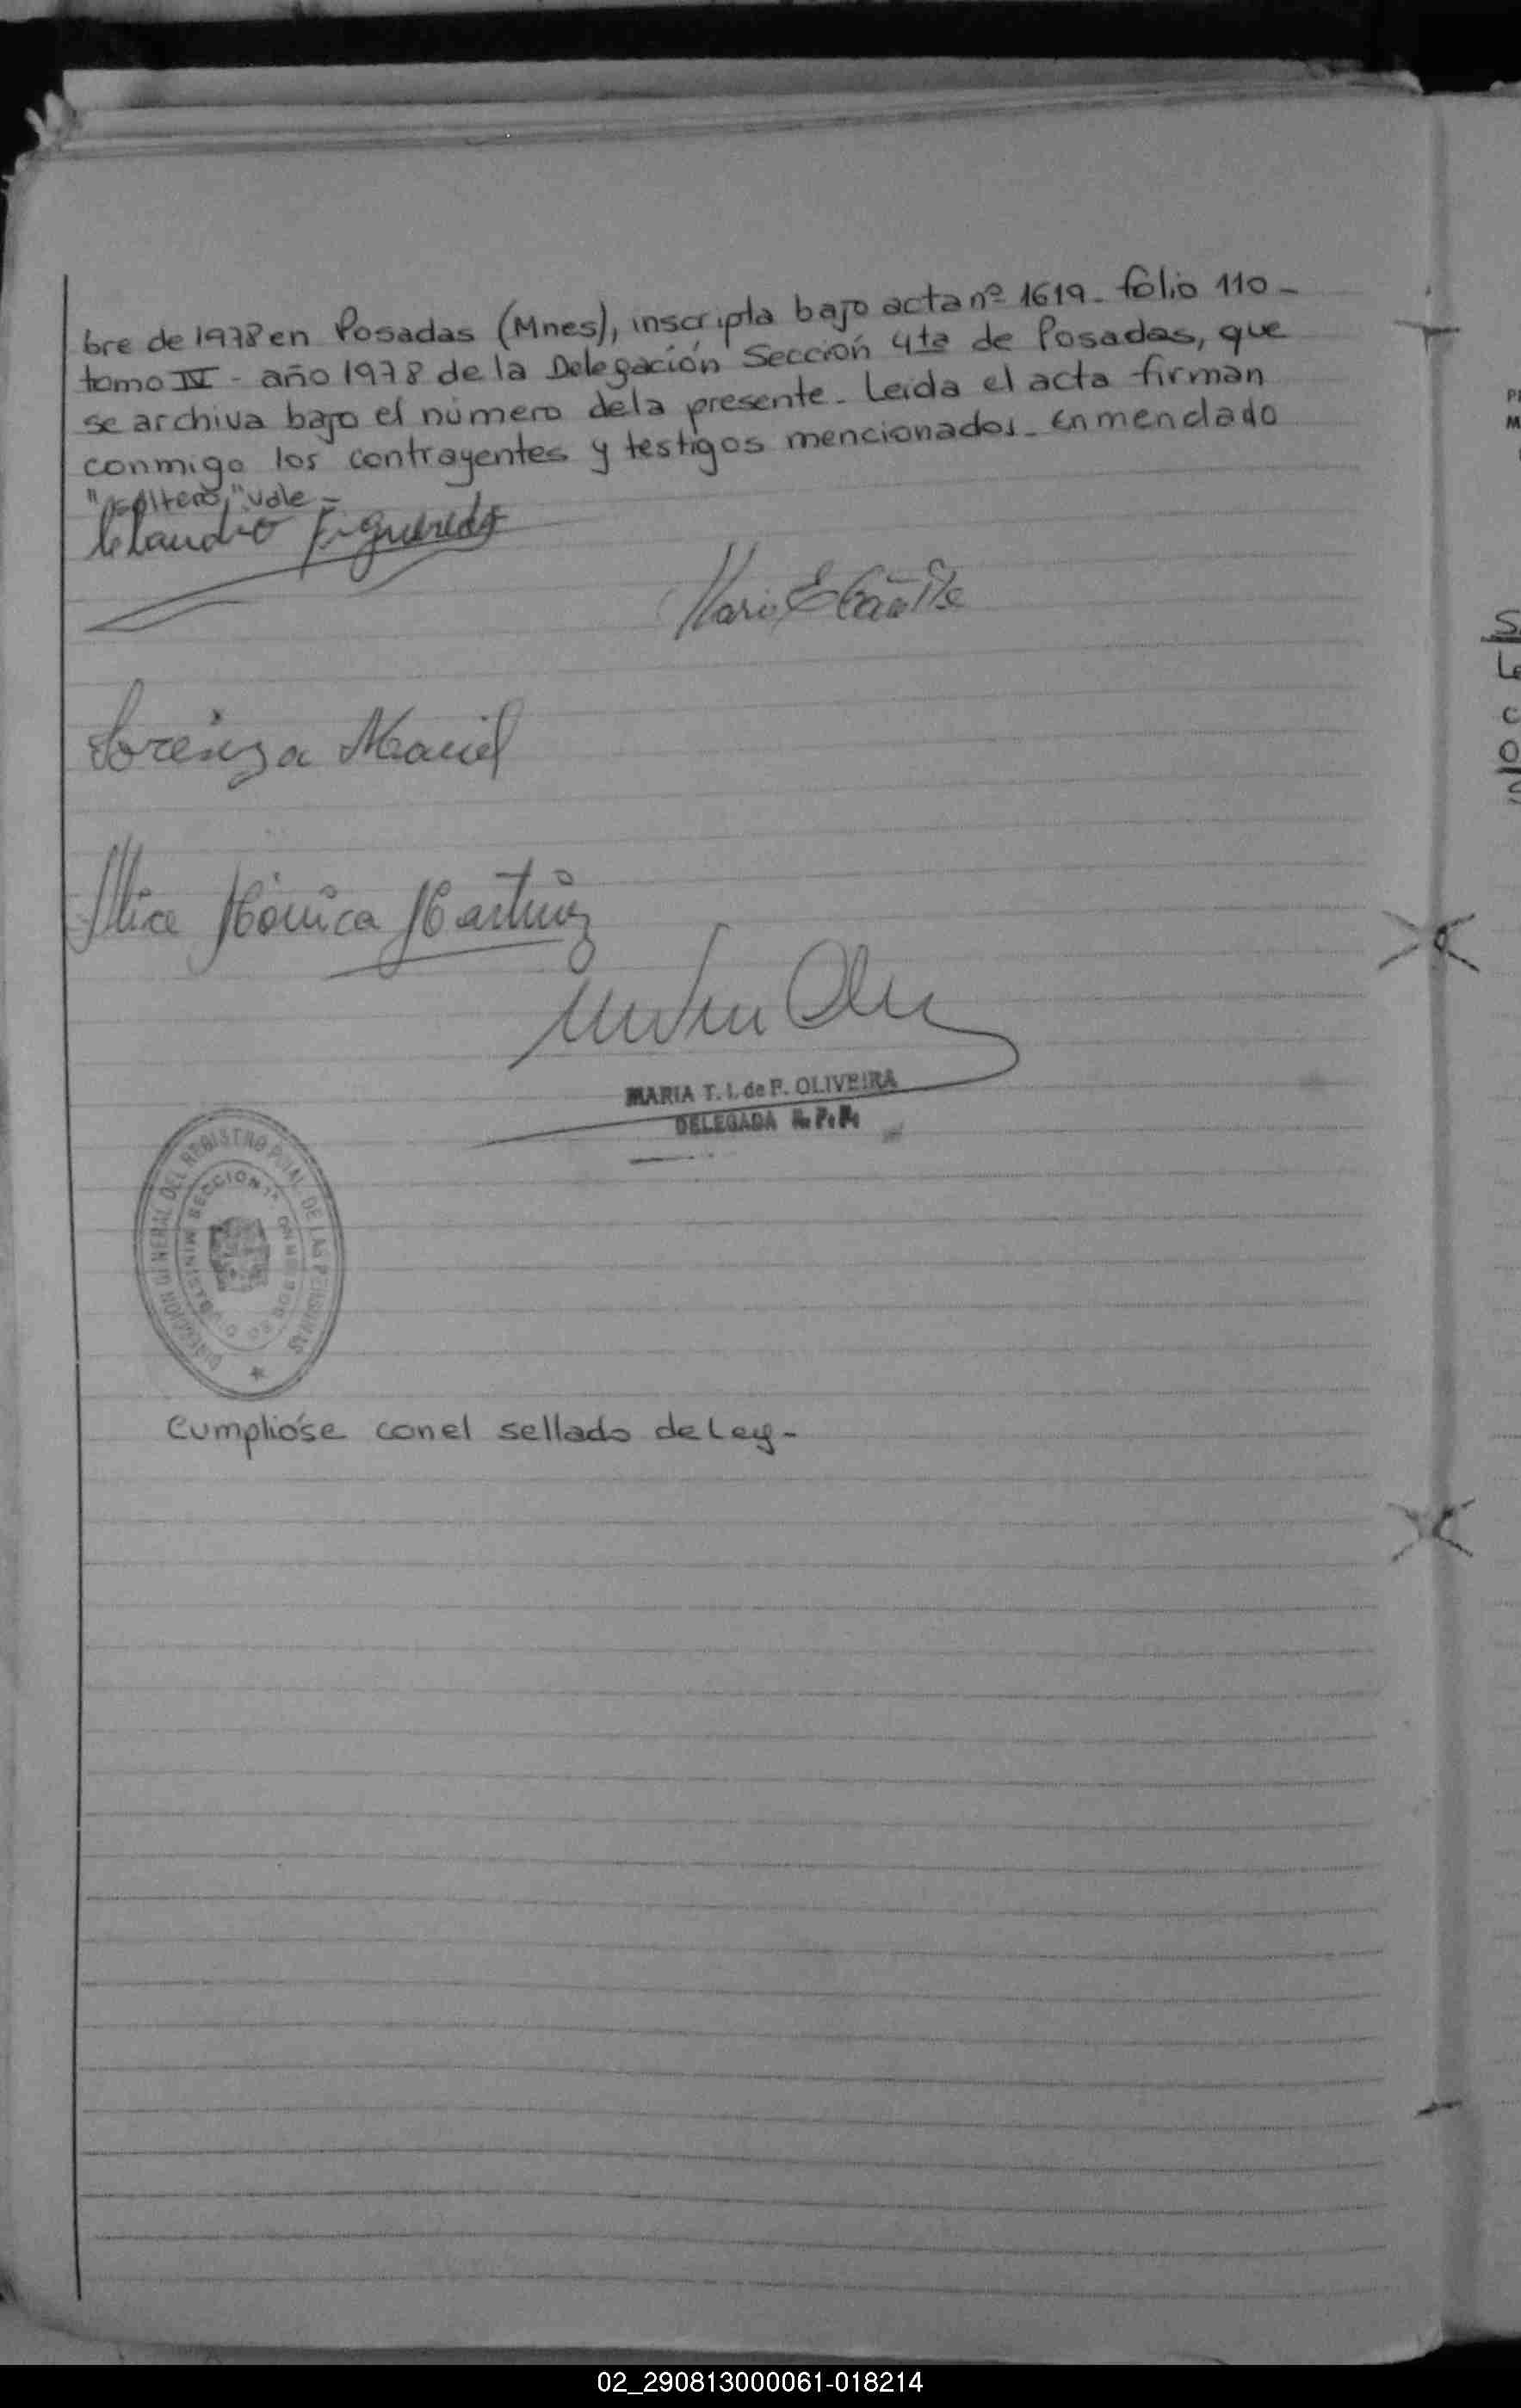 bre de 1978 en Posadas (Mnes), inscripta bajo acta nº 1619_ folio 110_
tomo IV - año 1978 de la Delegación Sección 4ta de Posadas, que
se archiva bajo el número dela presente_ Leída el acta firman
conmigo los contrayentes y testigos mencionados_ Enmendado
"soltero," vale_
Claudio Figueredo
Mario E
Lorenza Maciel
Alice Mónica Martinez
MARIA T. I. de P. OLIVEIRA
DELEGADA R. P. P.
DIRECCION GENERAL DEL REGISTRO PCIAL DE LAS PERSONAS
SECCION
Cumplióse conel sellado de Ley-
02_290813000061-018214